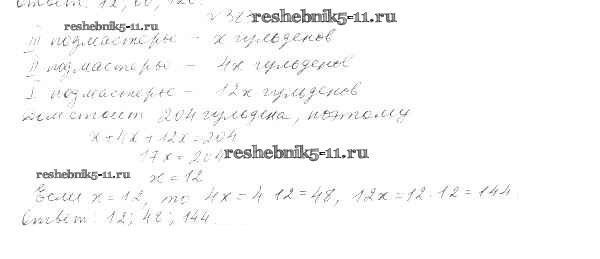 Ответ: 12, 60, 120.
№323 reshebnik5-11.ru
reshebnik5-11.ru
III подмастерье – x гульденов
II подмастерье – 4x гульденов
I подмастерье – 12x гульденов
Дом стоит 204 гульдена, поэтому
x+4x+12x=204
17x=204
reshebnik5-11.ru
reshebnik5-11.ru
x=12
Если x=12, то 4x=4·12=48, 12x=12·12=144.
Ответ: 12; 48; 144.